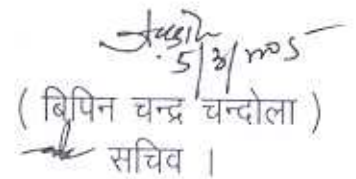 5/3/2005
( बिपिन चन्द्र चन्दोला )
सचिव ।